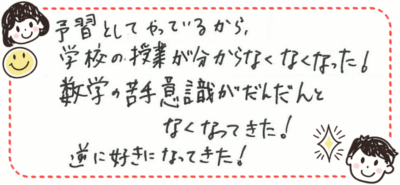 予習としてやっているから、
学校の授業が分からなくなくなった！
数学の苦手意識がだんだんと
なくなってきた！
逆に好きになってきた！